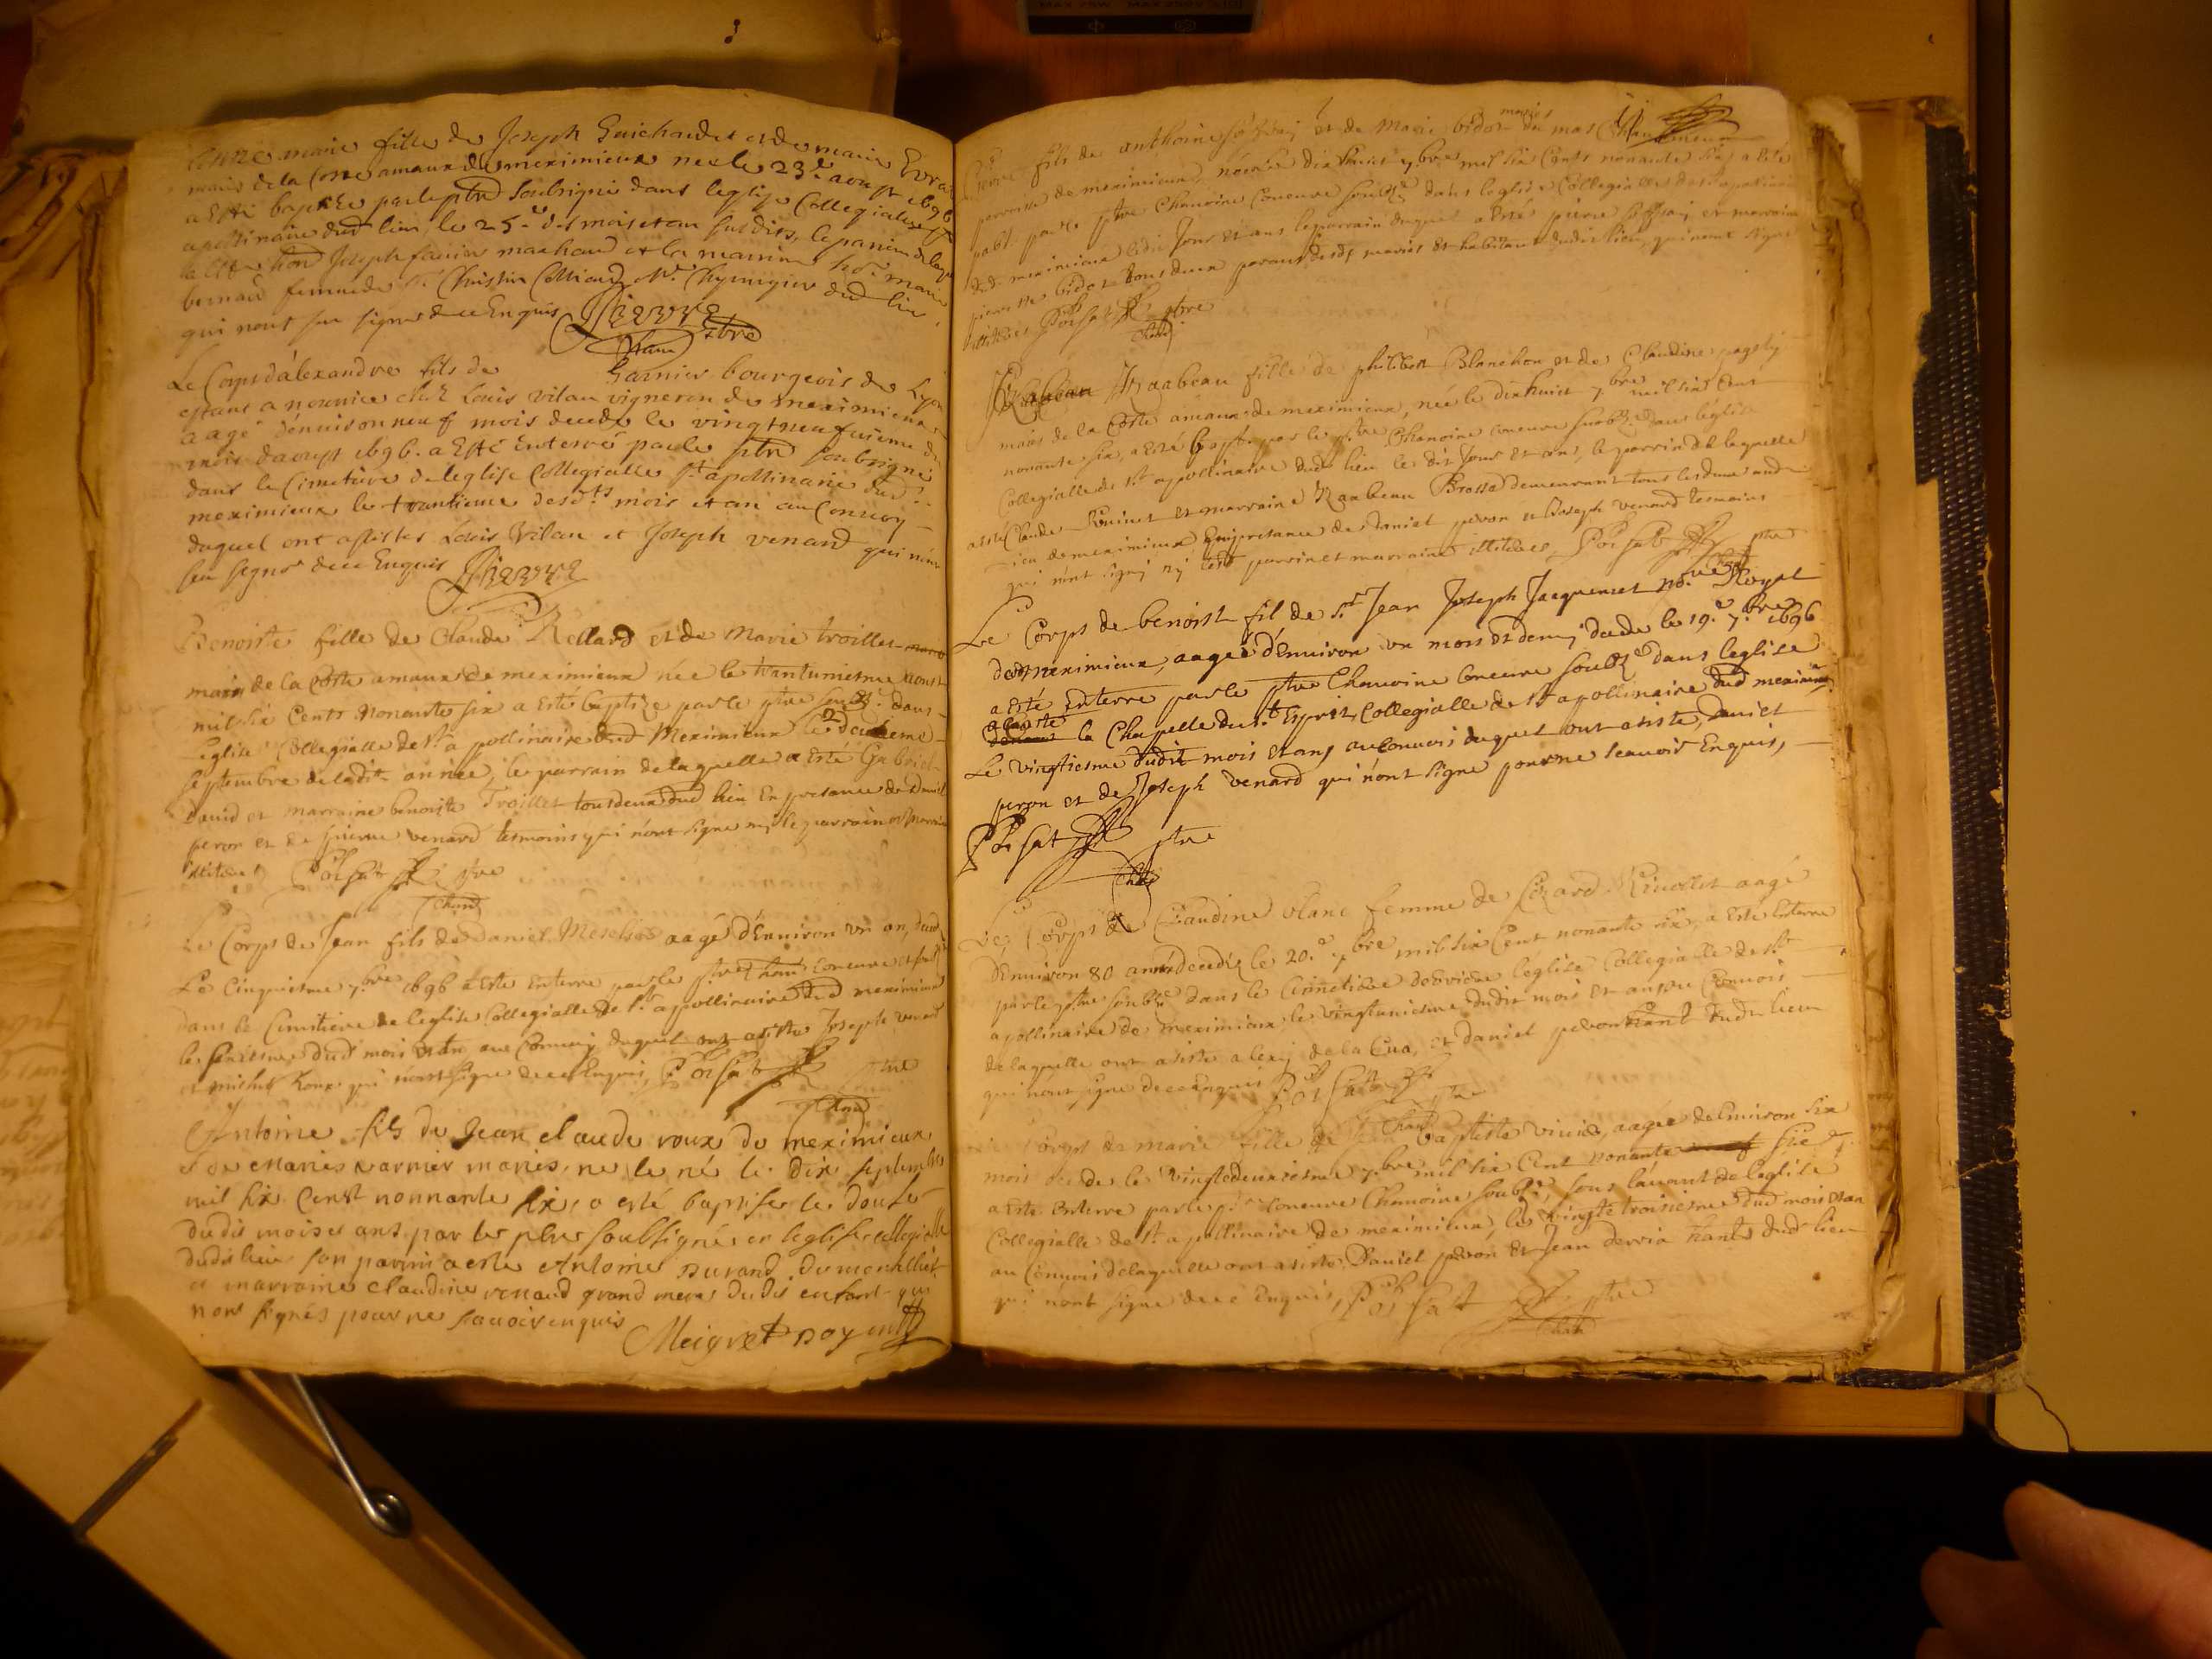 Anne marie fille de Joseph Guichardet et de marie Evra
mariés de la Coste amaux de meximieux née le 23e aoust 1696
a esté baptisée par le ptre soubsigné dans leglise Collegialle st
apollinaire dud lieu le 25e des mois et an susdits, le parrin de laque
Joseph favier marchand et la marrine marie
bernard femme de sr Christin Me Chyrurgien dud lieu
qui nont sceu signer de ce Enquis
ptre
Le Corps dálexandre fils de Garnier bourgeois de Lyon
estant a nourrice chez Louis vilan vigneron de meximieux
aagé dénuiron neuf mois decedé le vingtneufuieme du
mois daoust 1696. a Esté Enterré par le ptre soubsigné
dans le Cimetiere de leglise Collegialle st apollinaire dud
meximieux le trantieme desdts mois et an au Conuoy
duquel ont assistés Louis Vilan et Joseph venard qui nont
sceu signer de ce Enquis
Benoiste fille de Claude Rellard et de Marie troillet
mariés de la Coste amaux de meximieux née le trantuniesme aoust
mil six Cents Nonante six a Esté baptize par le ptre soubzé dans
léglise Collegialle de st apollinaire dud Meximieux le deuxieme
septembre de ladite année, le parrain de laquelle a Esté Gabriel
Dauid et marraine benoiste Troillet tous deux dud lieu En presance de daniel
peron et de pierre venard tesmoins qui nont signe ny le parrain et marraine
illiteres Poisat ptre
Chane
Le Corps de Jean fils de Daniel aagé d'Enuiron vn an, deced
Le Cinquiesme 7bre 1696 a Esté Enterre par le ptre Coneure
dans le Cimitiere de leglise Collegialle de st apollinaire dud meximieux
le sixiesme dud mois et an au Conuoy duquel ont asisté Joseph venard
et michel Roux qui nont signe de ce Enquis, Poisat ptre
Chane
Antoine fils de Jean claude roux de meximieux
et de Marie varnier mariés, ne le né le dix septembre
mil six Censt nonnante six, a esté baptisez le douze
dudit mois et ans, par les ptre soubsigné en leglise collegialle
dudit lieu son parrin a esté Antoine Durand
et marraine claudine renaud grand mere dudit enfant qui
nont signés pour ne scauoir enquis
Meigret Doyen
11
mariés
pierre fils de anthoine et de Marie bidot du mas
parroisse de meximieux, né le dix huict 7bre mil six Cents nonante six, a Esté
bapt. par le ptre Chanoine Coneure soubzé dans leglise Collegialle de st apolinaire
dud meximieux ledit Jour et ans le parrain duquel a Esté pierre et marraine
pierrette bidot tous deux parans desdts mariés et habitans dudit lieu, qui nont signé
illiteres Poisat ptre
Chane
Isabeau fille de philibert Blanchon et de Claudine
mariés de la Coste amaux de meximieux, née le dixhuict 7bre mil six Cent
nonante six, a Esté bapt. par le ptre Chanoine coneure soubzé dans léglise
Collegialle de st apollinaire dud lieu le dit Jour et an, le parrin de laquelle
a esté Claude et marraine Isabeau Brossa demeurant tous les deux aud
lieu de meximieux En presance de Daniel peron et Joseph venard tesmoins
qui nont signé ny lesd parrin et marraine illiteres, Poisat ptre
Le Corps de benoist fil de sr Jean Joseph Jacquemet nore Royal
dud meximieux, aagé d'Enuiron vn mois et demy decedé le 19e 7bre 1696
a esté Enterre par le ptre Chanoine Coneure soubzé dans leglise
a Costé
la Chapelle du st Esprit, Collegialle de st apollinaire dud meximieux
Le vingtiesme dudit mois et ans au Conuois duquel ont asisté, Daniel
peron et de Joseph venard qui nont signe pour ne scauoir Enquis,
Poisat ptre
Chane
Le Corps de Claudine blanc femme de Cezard Riuollet aagé
dEnuiron 80 ans decedé le 20e 7bre mil six Cent nonante six, a Esté Enterre
par le ptre soubzé dans le Cimetiere derriere léglise Collegialle de st
apollinaire de meximieux, le vingtuniesme dudit mois et an au Conuois
de laquelle ont asisté alexy de la Cua, et daniel peron hant dud lieu
qui nont signe de ce Enquis Poisat ptre
Chane
Corps de marie fille de Jean baptiste aagée de Enuiron six
mois decedé le vingtdeuxiesme 7bre mil six Cent nonante six
a Esté Enterre par le ptre Coneure Chanoine soubzé, sous lauant de leglise
Collegialle de st apollinaire de meximieux, le vingte troisiesme dud mois et an
au Conuois de laquelle ont asisté Daniel peron Et Jean derria hants dud lieu
qui nont signe de ce Enquis, Poisat ptre
Chane